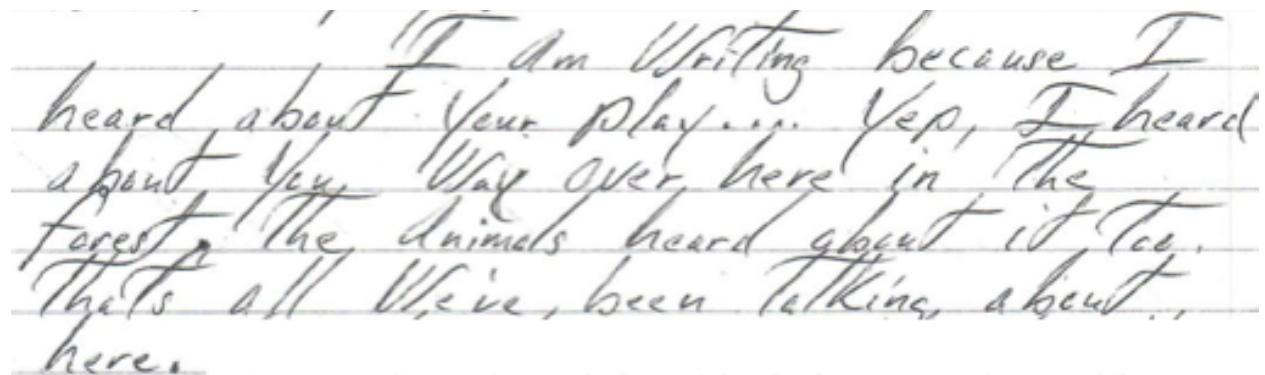 I am Writing because I
heard about your play.... Yep, I heard
about you Way over here in The
forest, The Animals heard about it Too.
That's all We've been Talking about
here.